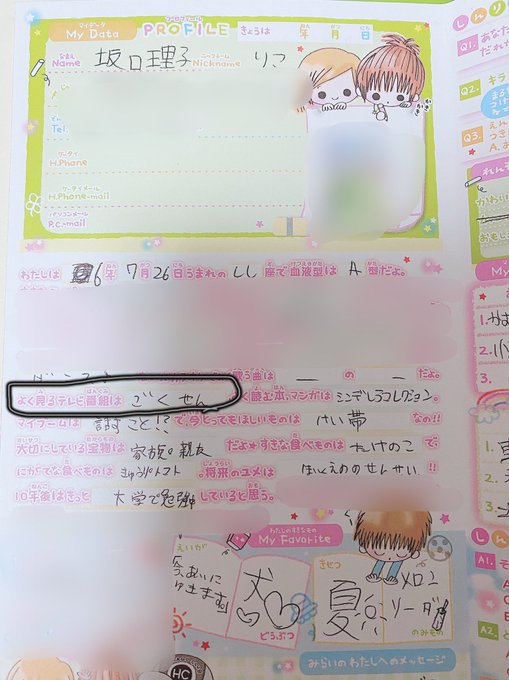 マイデータ My Data プロフィール PROFILE きょうは 年 月 日
なまえ Name 坂口理子 ニックネーム Nickname りこ
でんわ Tel.
ケータイ H.Phone
ケータイメール H.Phone-mail
パソコンメール P.C.-mail
わたしは 6年 7月 26日うまれの しし 座で血液型は A 型だよ。
歌う曲は ー の ー だよ。
よく見るテレビ番組は ごくせん く読む本、マンガは シンデレラコレクション。
マイブームは 詩 こと!? で、今とってもほしいものは けい帯 なの!!
大切にしている宝物は 家族。親友 だよ★すきな食べものは たけのこ で
にがてな食べものは きゅうり、トマト 。将来のユメは ほいくえんのせんせい !!
10年後はきっと 大学で勉強 していると思う。
わたしのすきなもの
My Favorite
えいが
今あいに
ゆきます
犬
どうぶつ
きせつ
夏
メロン
ソーダ
のみもの
みらいのわたしへのメッセージ
HC
しんり
Q1. あなた
だれか
Q2. キラ
Q3. えん
A.
れんあ
かわいい
おもし
My
1.
2.
3.
1.
2.
3.
しんり
A1.
A2.